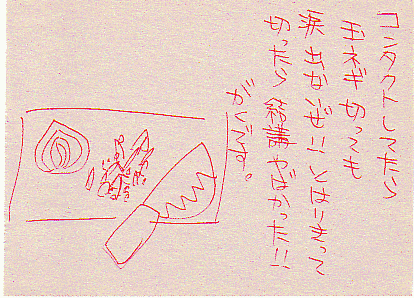 コンタクトしてたら
玉ネギ切っても
涙出ないぜ!!とはりきって
切ったら結構やばかった!!
がじです。